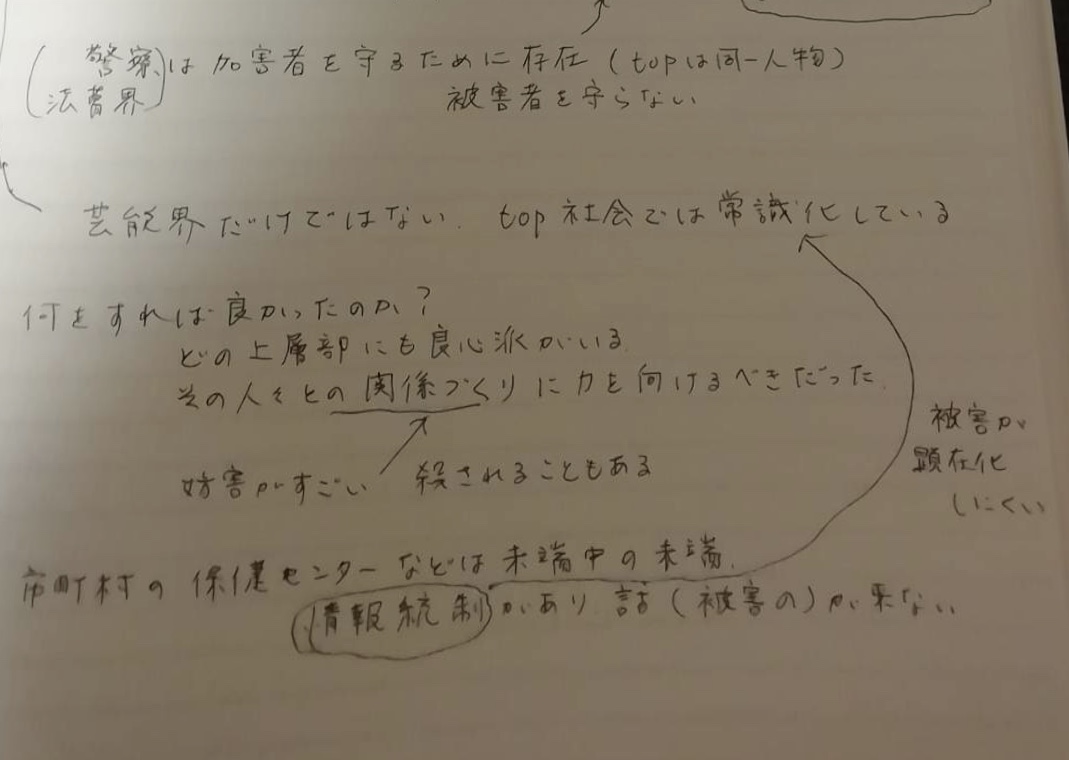 (警察
法曹界)は加害者を守るために存在(topは同一人物)
被害者を守らない
芸能界だけではない. top社会では常識化している
何をすれば良かったのか?
どの上層部にも良心派がいる.
その人々との関係づくりに力を向けるべきだった.
妨害がすごい 殺されることもある
被害が
顕在化
しにくい
市町村の保健センターなどは末端中の末端.
情報統制があり 話(被害の)が来ない